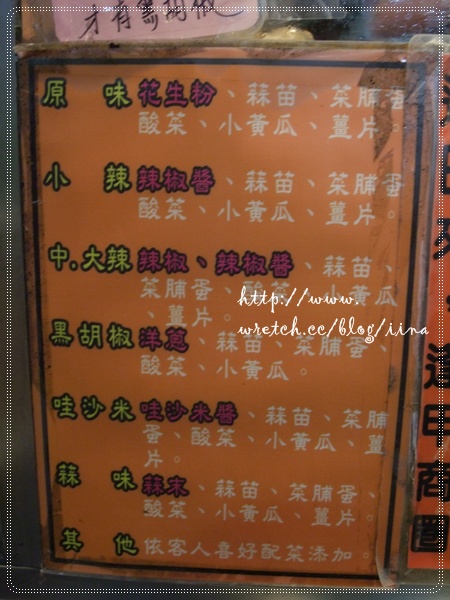 才有黑胡椒
原味 花生粉、蒜苗、菜脯蛋
酸菜、小黃瓜、薑片。
小辣 辣椒醬、蒜苗、菜脯蛋
酸菜、小黃瓜、薑片。
中.大辣 辣椒、辣椒醬、蒜苗、
菜脯蛋、酸菜、小黃瓜
、薑片。
黑胡椒 洋蔥、蒜苗、菜脯蛋、
酸菜、小黃瓜。
哇沙米 哇沙米醬、蒜苗、菜脯
蛋、酸菜、小黃瓜、薑
片。
蒜味 蒜末、蒜苗、菜脯蛋、
酸菜、小黃瓜、薑片。
其他 依客人喜好配菜添加。
http://www.
wretch.cc/blog/iina
逢甲商圈